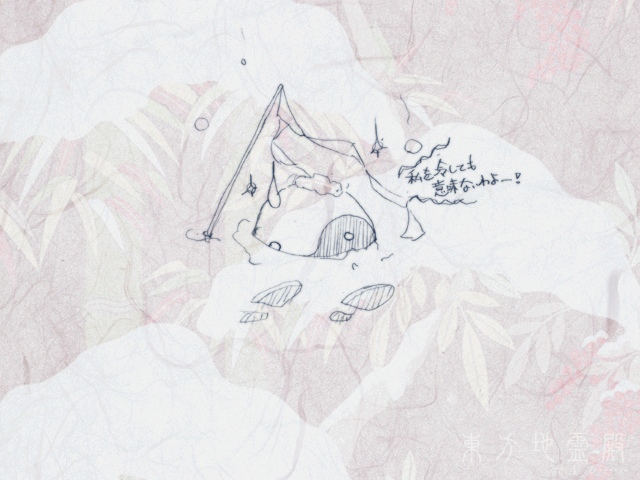 私を冷しても
意味ないわよー!
東方地霊殿